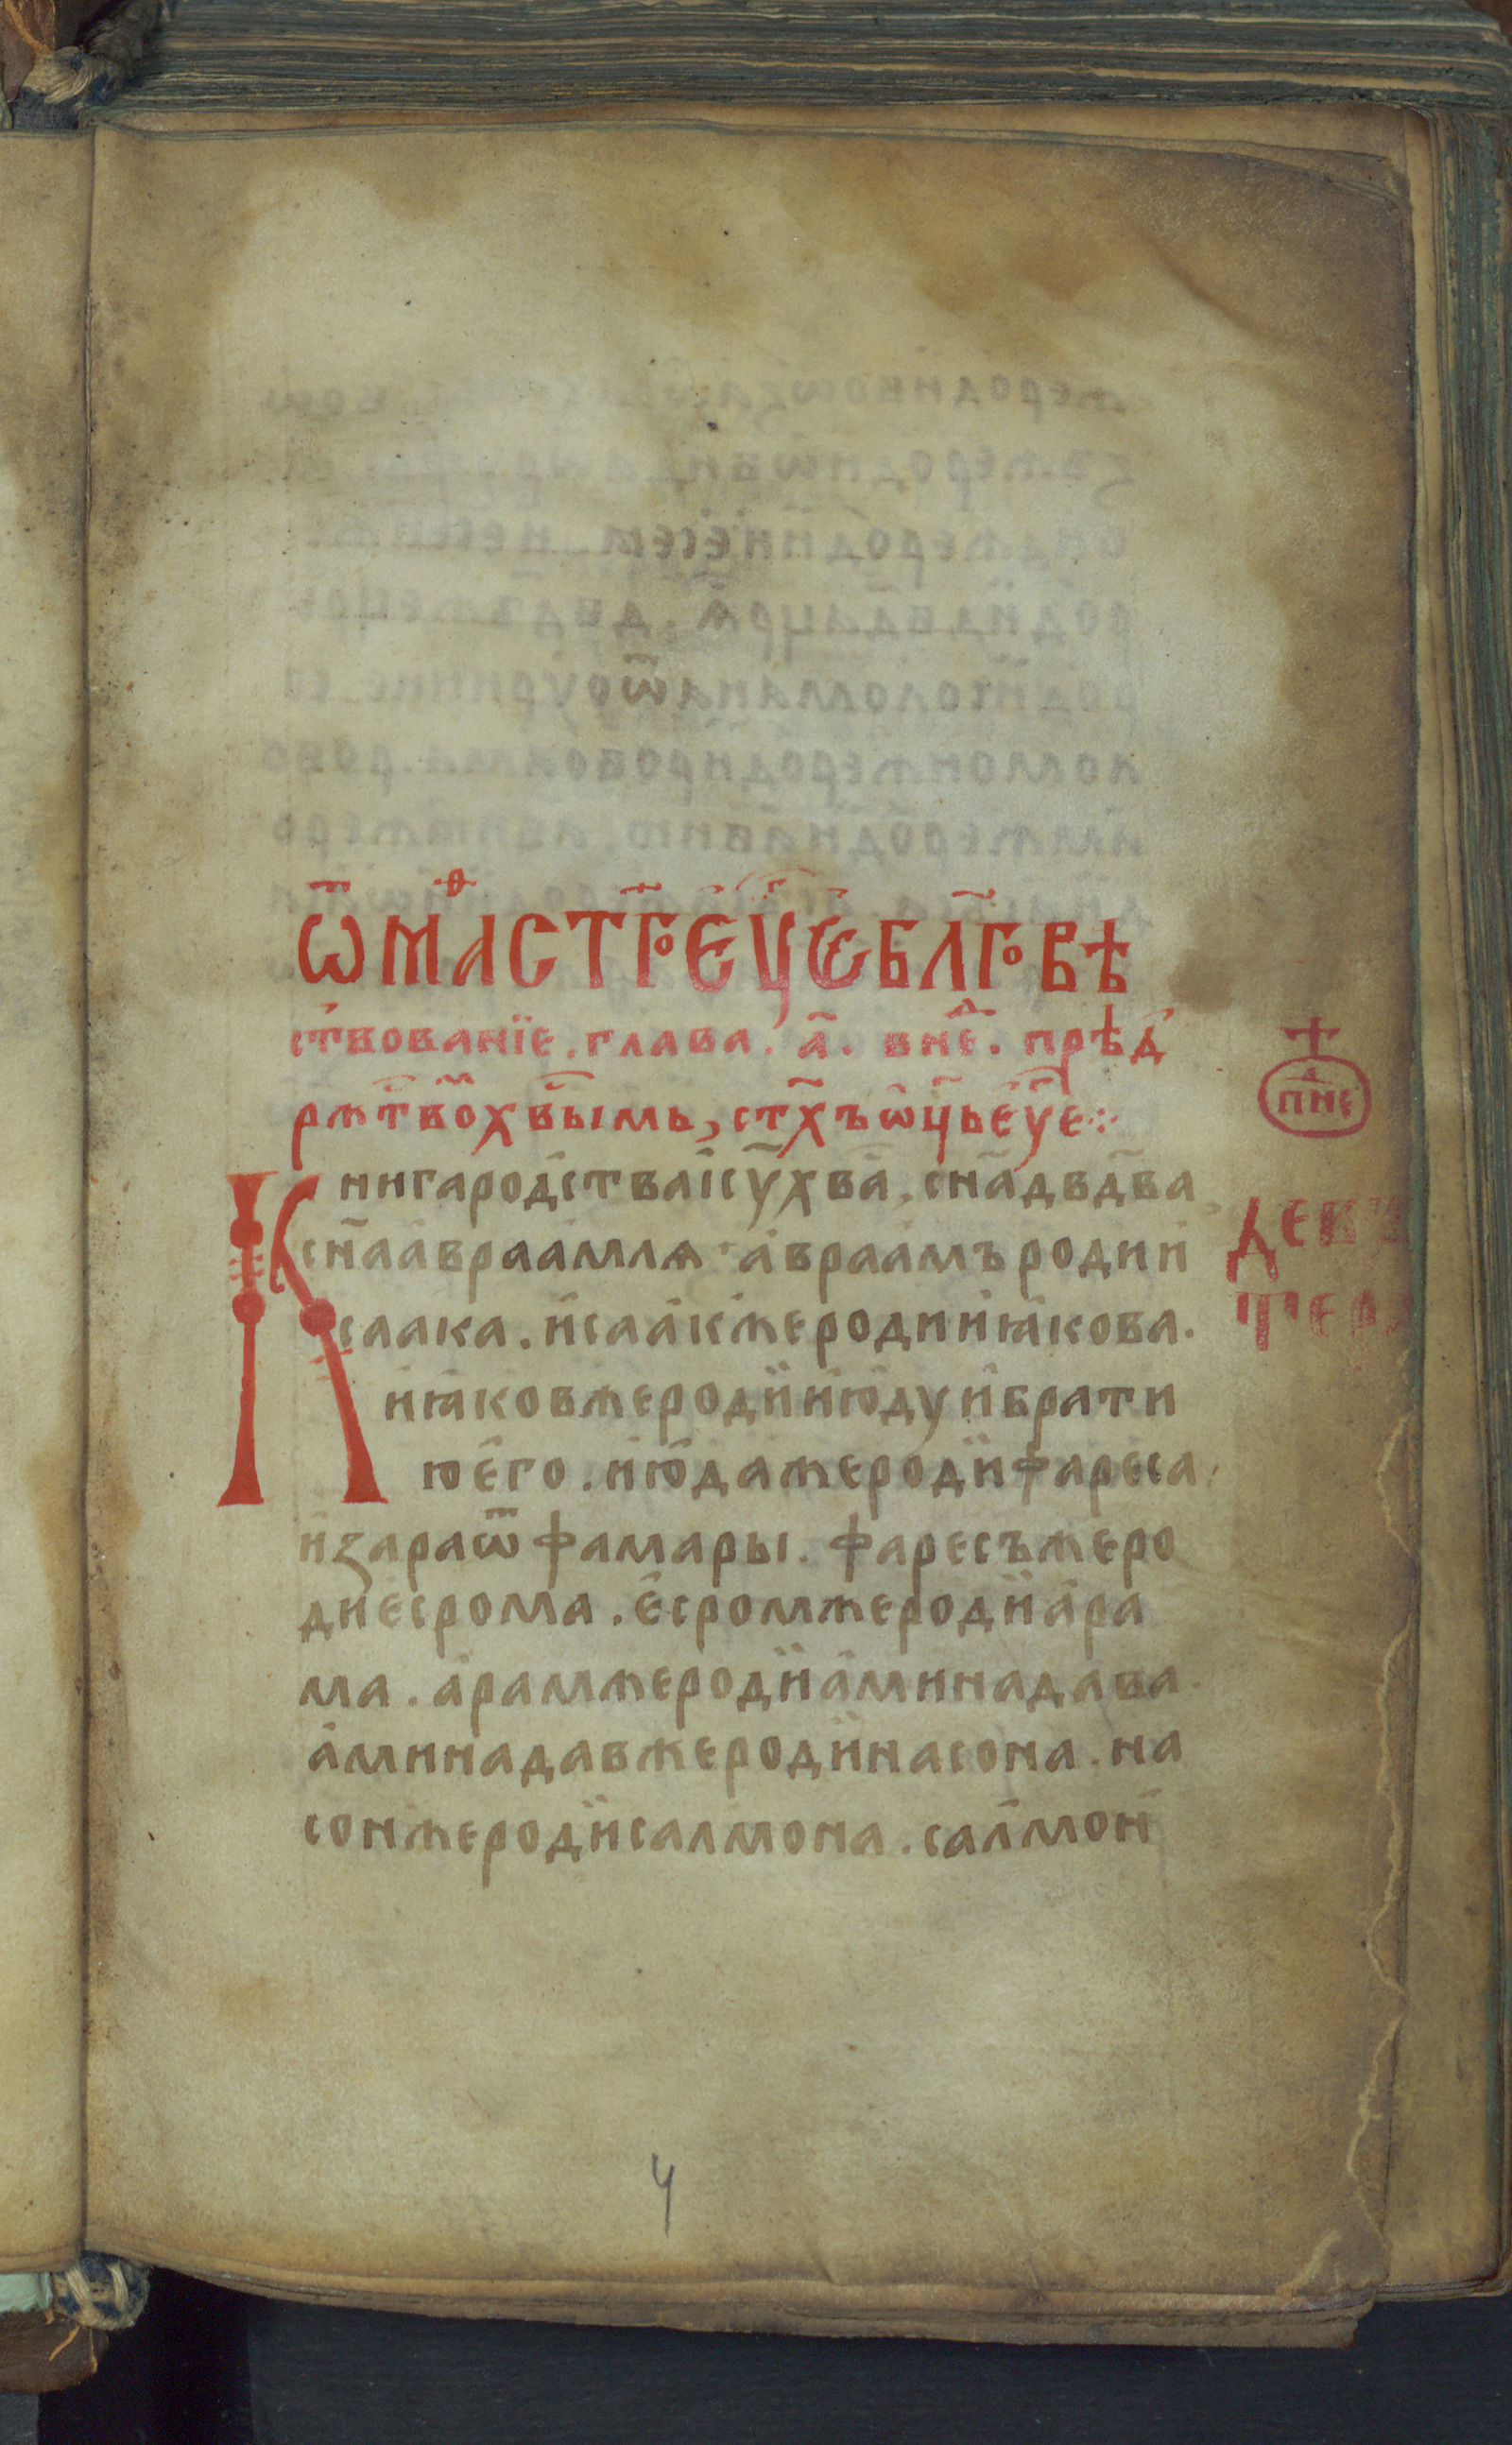 Ѿ МАⷴ СТГО ЕУⷢ҇Є БЛГОВѢ
ствованїе. глава. а҃. в неⷣ҇. прѣⷣ
рⷤтвоⷨ хв҃ымь, ст҃хъ ѡ҃ць є҆ѵ҃е:
Книга родства і҆су х҃ва, сн҃а дв҃два
сн҃а а҆враамлѧ а҆враамъ роди и҆
саака. и҆саак же роди и҆ꙗкова.
и҆ꙗков же роди и҆ю҆ду и҆ брати
ю е҆го. и҆ю҆да же роди фареса
и҆ зара ѿ фамары. фаресъ же ро
ди е҆срома. е҆сром же роди а҆ра
ма. а҆рам же роди а҆минадава
а҆минадав же роди насона. на
сон же роди салмона. салмон
пнеⷣ҇
4